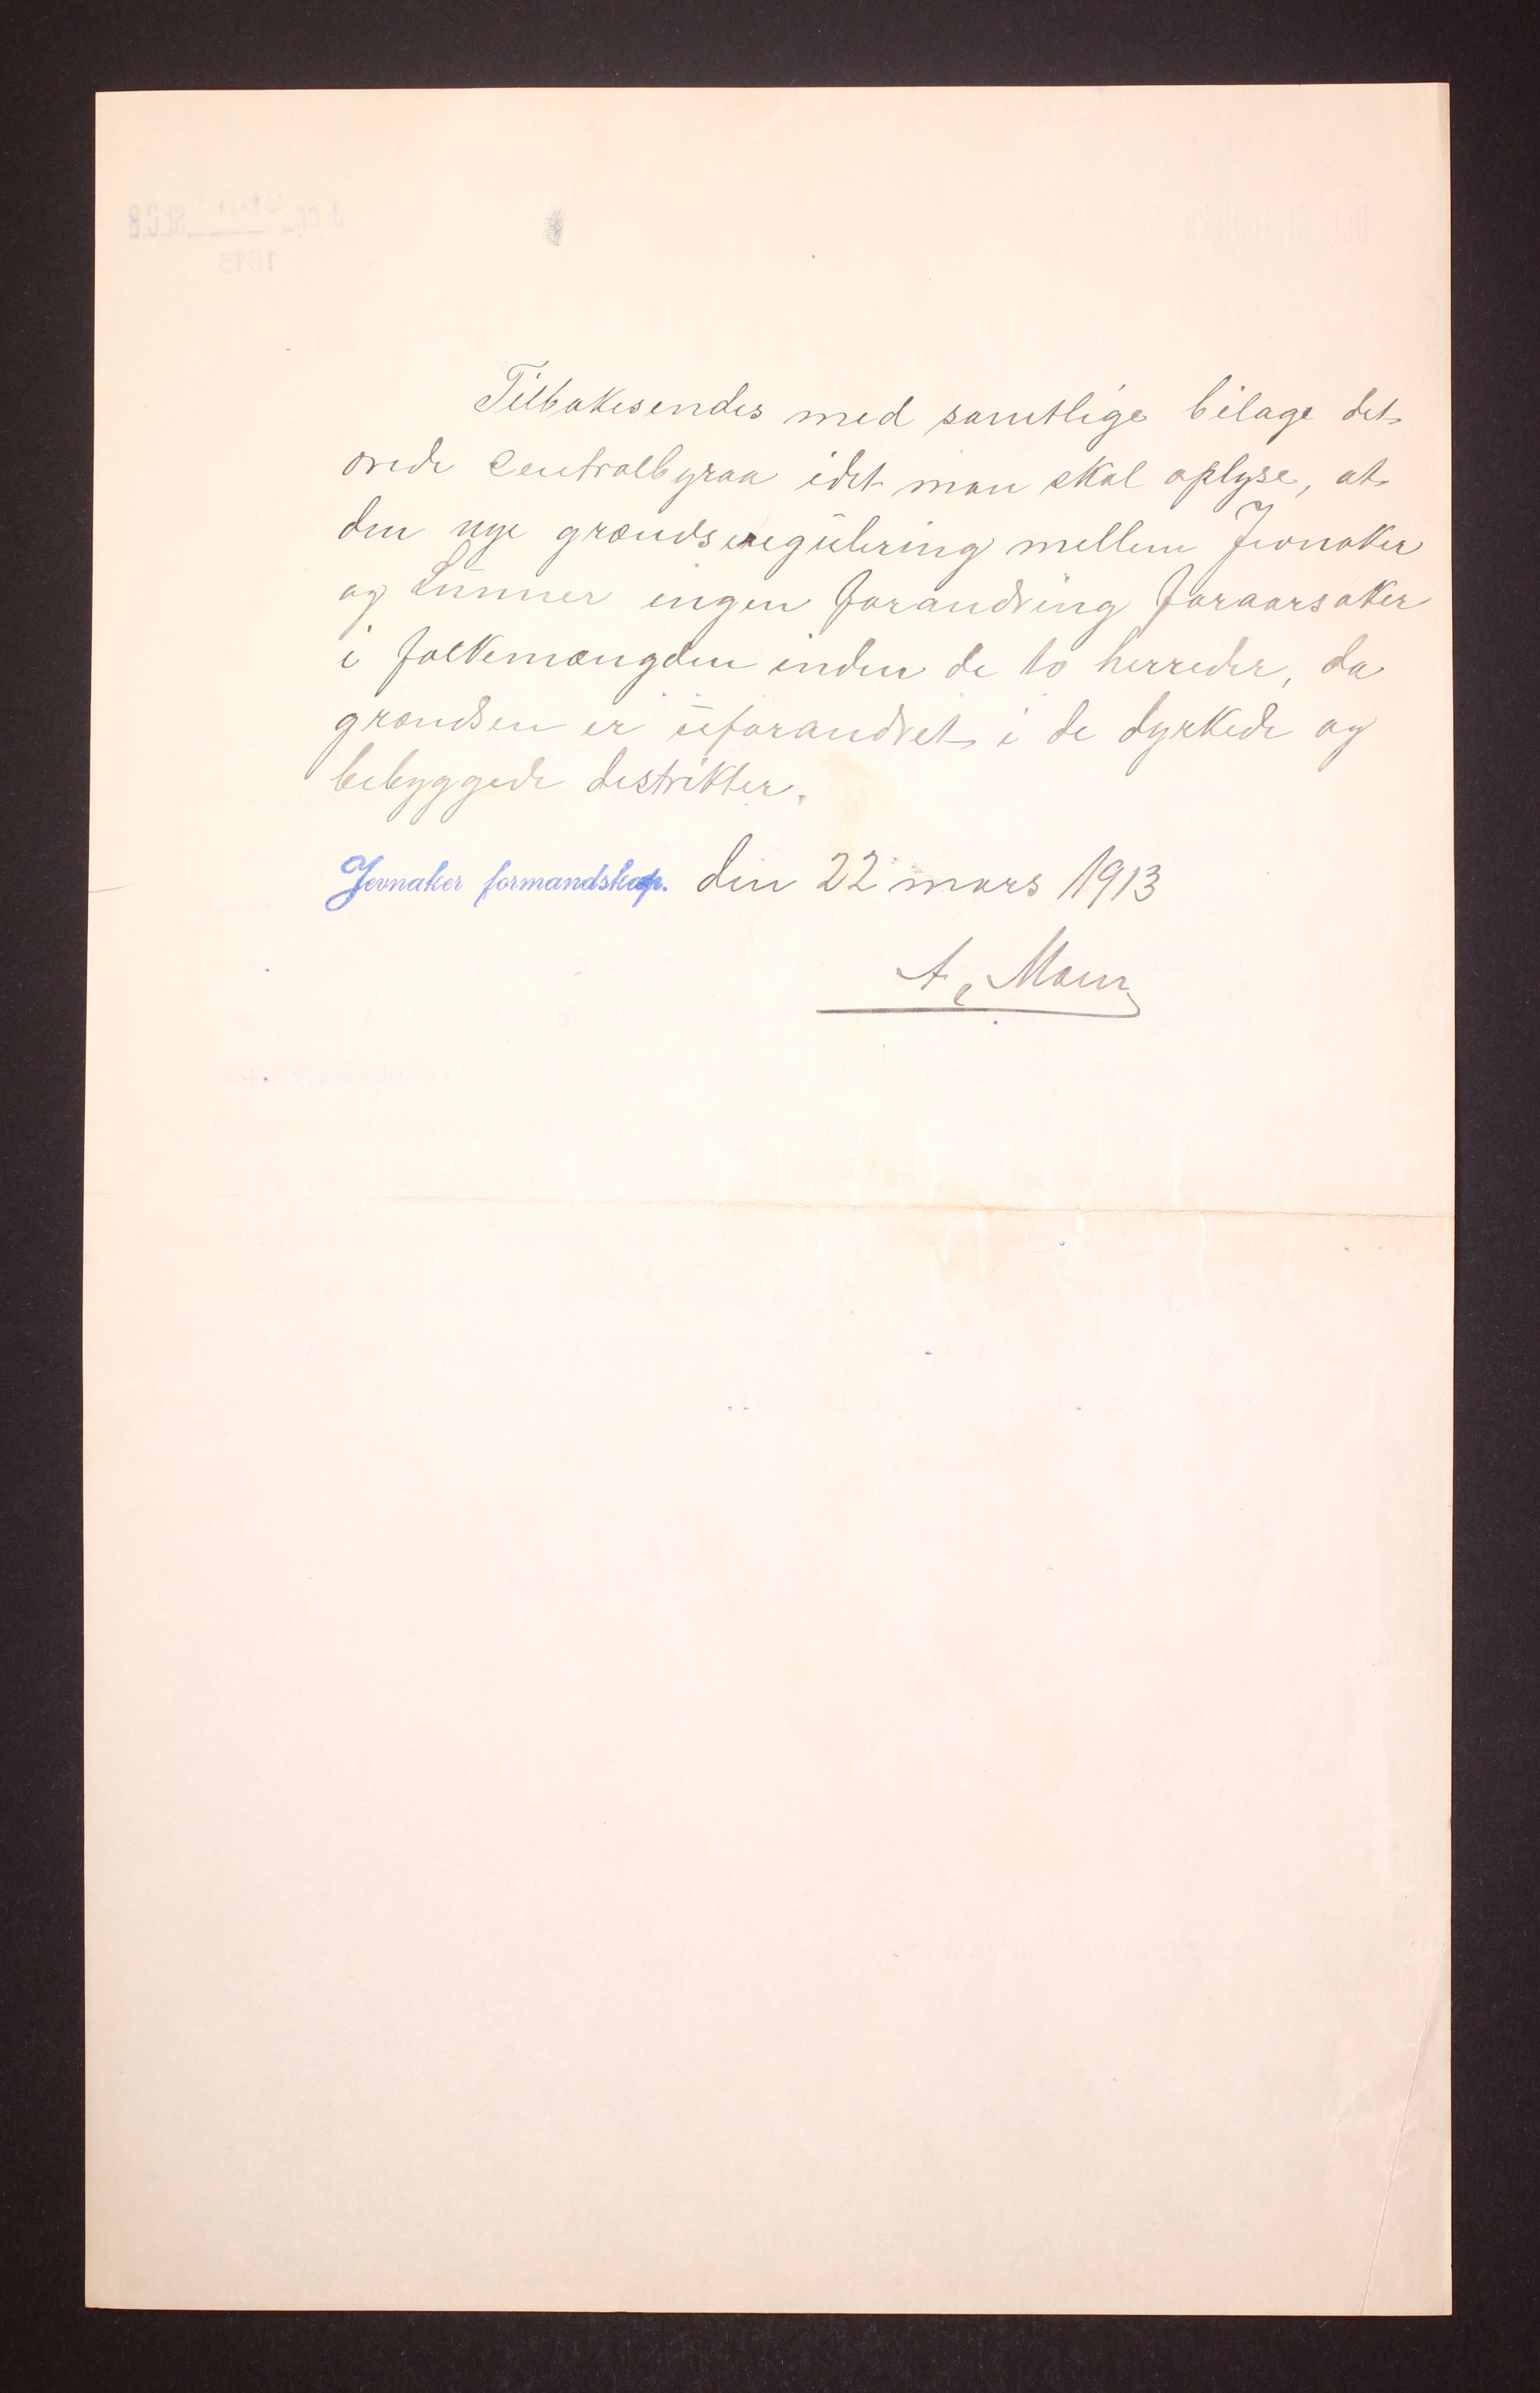 Tilbakesendes med samtlige bilage det
ærede Centralbyraa idet man skal oplyse, at
den nye grændseregulering mellem Jevnaker
og Lunner ingen forandring foraarsaker
i folkemængden inden de to herreder, da
grændsen er uforandret i de dyrkede og
bebyggede distrikter.
Jevnaker formandskap. den 22 mars 1913
A. Moen